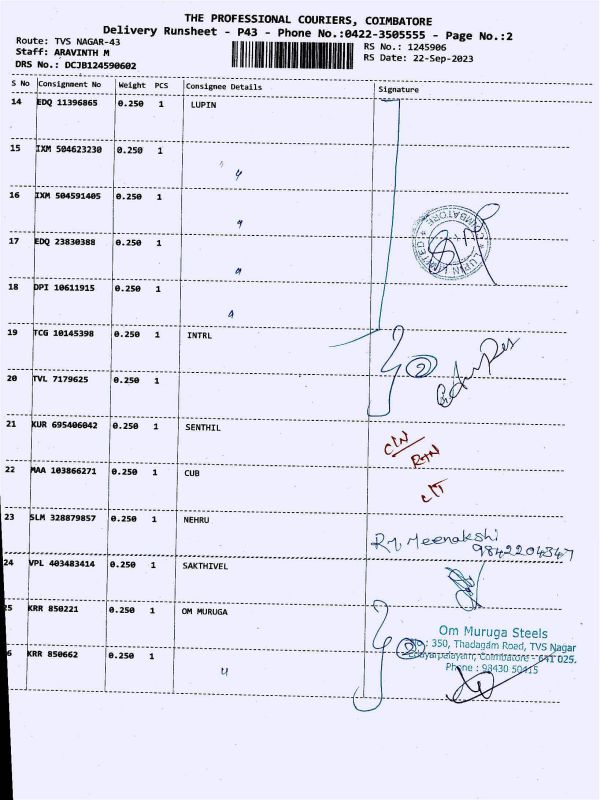 THE PROFESSIONAL COURIERS, COIMBATORE
Delivery Runsheet - P43 - Phone No.:0422-3505555 - Page No.:2
Route: TVS NAGAR-43
RS No.: 1245906
Staff: ARAVINTH M
RS Date: 22-Sep-2023
DRS No.: DCJB124590602
S No Consignment No Weight PCS Consignee Details Signature
14 EDQ 11396865 0.250 1 LUPIN
15 IXM 504623230 0.250 1
"
16 IXM 504591405 0.250 1
"
LUPIN LIMITED * COIMBATORE *
17 EDQ 23830388 0.250 1
"
18 DPI 10611915 0.250 1
"
19 TCG 10145398 0.250 1 INTRL
2
20 TVL 7179625 0.250 1
21 KUR 695406042 0.250 1 SENTHIL
CIN/
RTN
22 MAA 103866271 0.250 1 CUB
CIT
23 SLM 328879857 0.250 1 NEHRU
Meenakshi
9842204347
24 VPL 403483414 0.250 1 SAKTHIVEL
25 KRR 850221 0.250 1 OM MURUGA
2
Om Muruga Steels
No : 350, Thadagam Road, TVS Nagar
Coimbatore - 641 025.
Phone : 98430 50415
6 KRR 850662 0.250 1
"